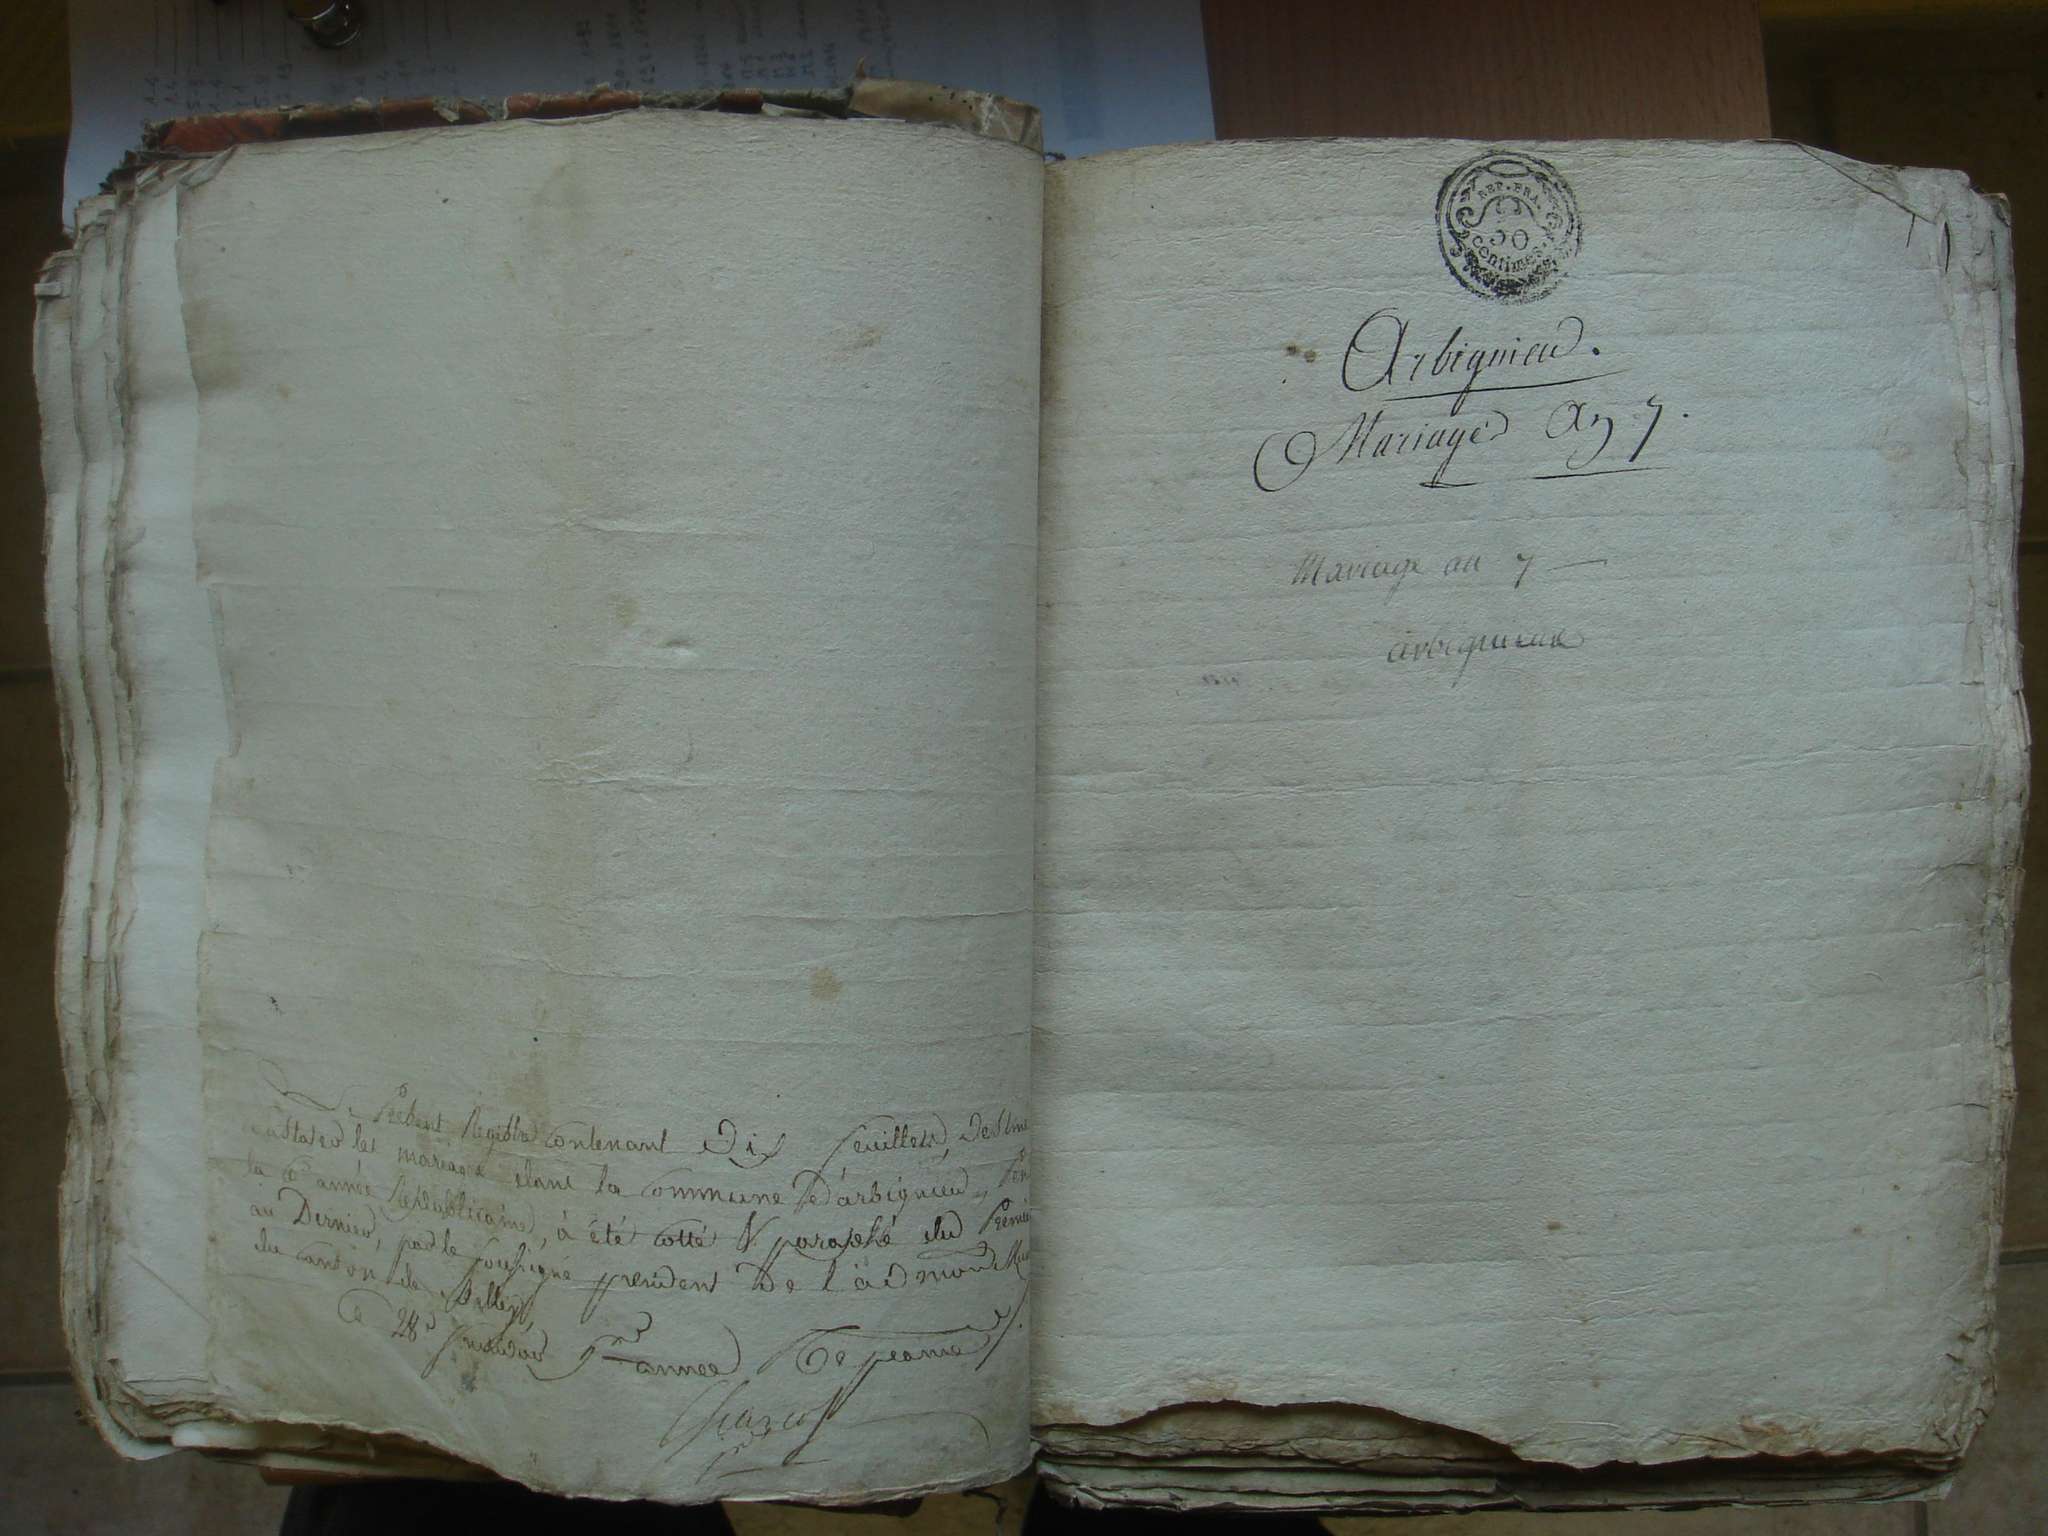 Présent Registre contenant Dix feuillets, Destiné
constater les mariage dans la commune D'arbignieu, Pen
la 6e année Républicaine, à été cotté & paraphé du Premie
au Dernier, par le soussigné président De l'admon Mu
du canton de Belley,
Ce 28e fructidor 5me année
REP. FRA.
50
centimes
Arbignieu.
Mariages An 7.
Mariage an 7
arbignieux